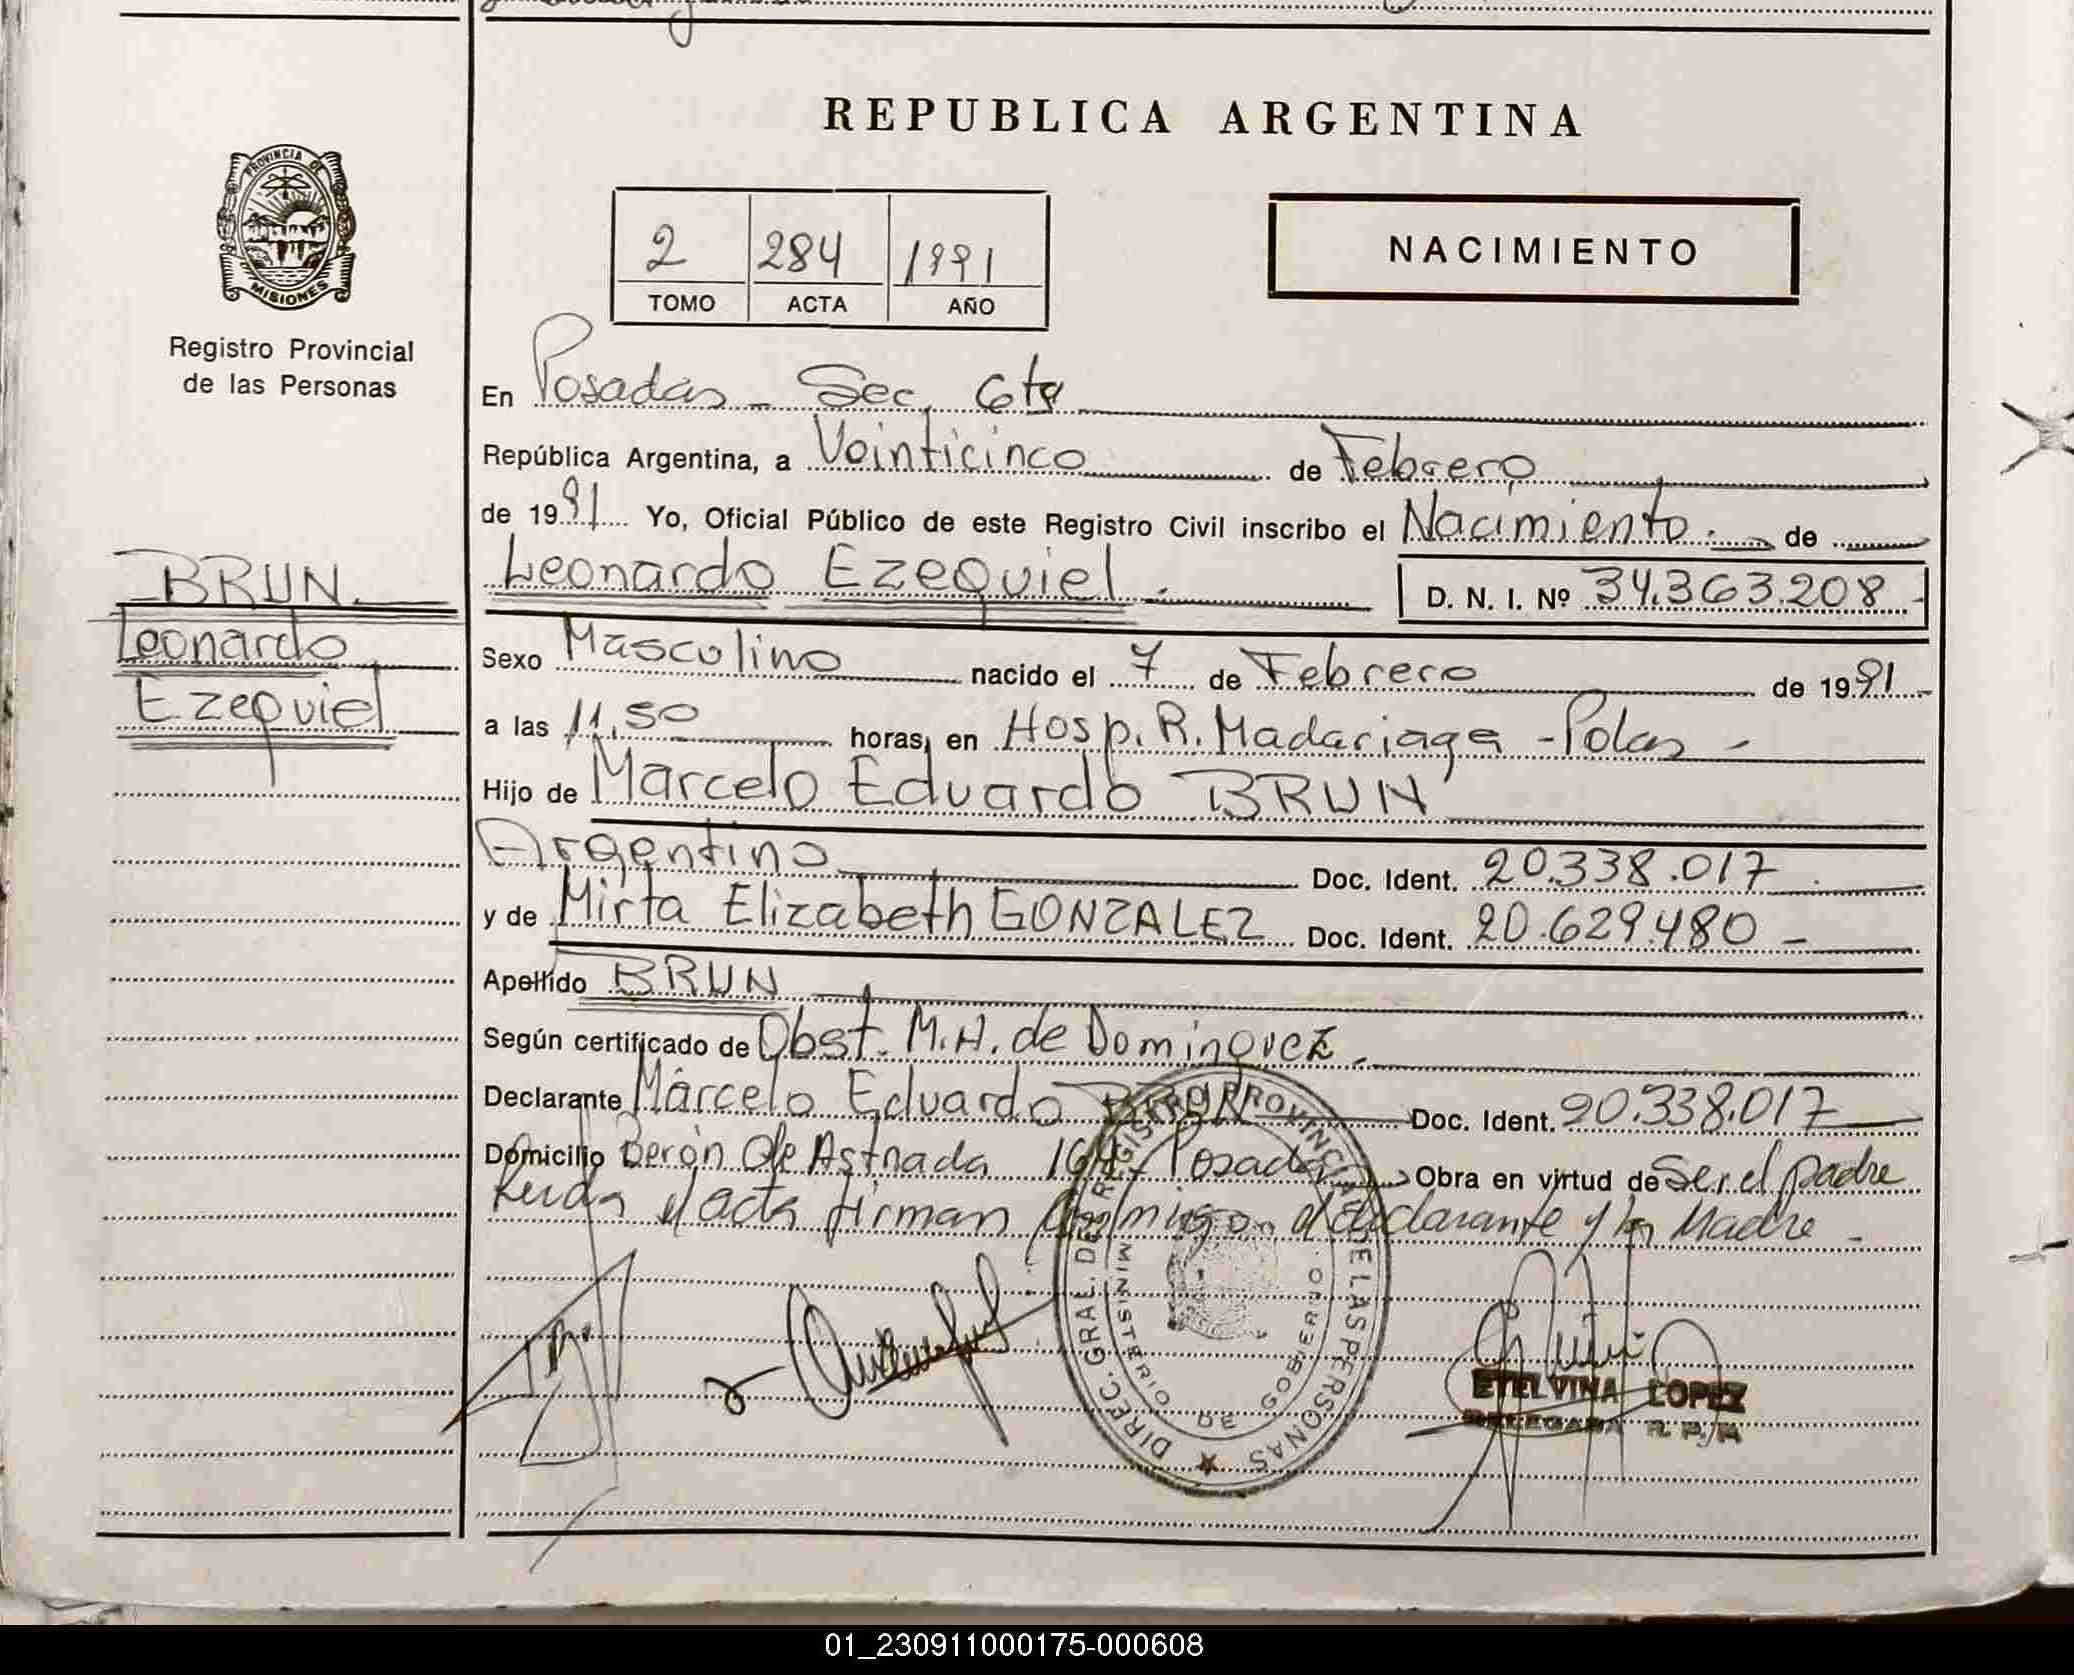 REPUBLICA ARGENTINA
PROVINCIA DE MISIONES
Registro Provincial
de las Personas
2 284 1991
TOMO ACTA AÑO
NACIMIENTO
En Posadas - Sec. 6ta
República Argentina, a Veinticinco de Febrero
de 1991 Yo, Oficial Público de este Registro Civil inscribo el Nacimiento de
Leonardo Ezequiel.- D. N. I. Nº 34.363.208-
BRUN
Leonardo
Ezequiel
Sexo Masculino nacido el 7 de Febrero de 1991
a las 11,50 horas, en Hosp. R. Madariaga - Pdas -
Hijo de Marcelo Eduardo BRUN
Argentino Doc. Ident. 20.338.017
y de Mirta Elizabeth GONZALEZ Doc. Ident. 20.629.480 -
Apellido BRUN
Según certificado de Obst. M.A. de Dominguez.
Declarante Marcelo Eduardo BRUN Doc. Ident. 20.338.017
Domicilio Berón de Astrada Posadas Obra en virtud de Ser el padre
Leida el acta firman conmigo el declarante y la Madre -
DIREC. GRAL. DE REGISTRO PROVINCIAL DE LAS PERSONAS
MINISTERIO DE GOBIERNO
ETELVINA LOPEZ
DELEGADA R. P. P.
01_230911000175-000608